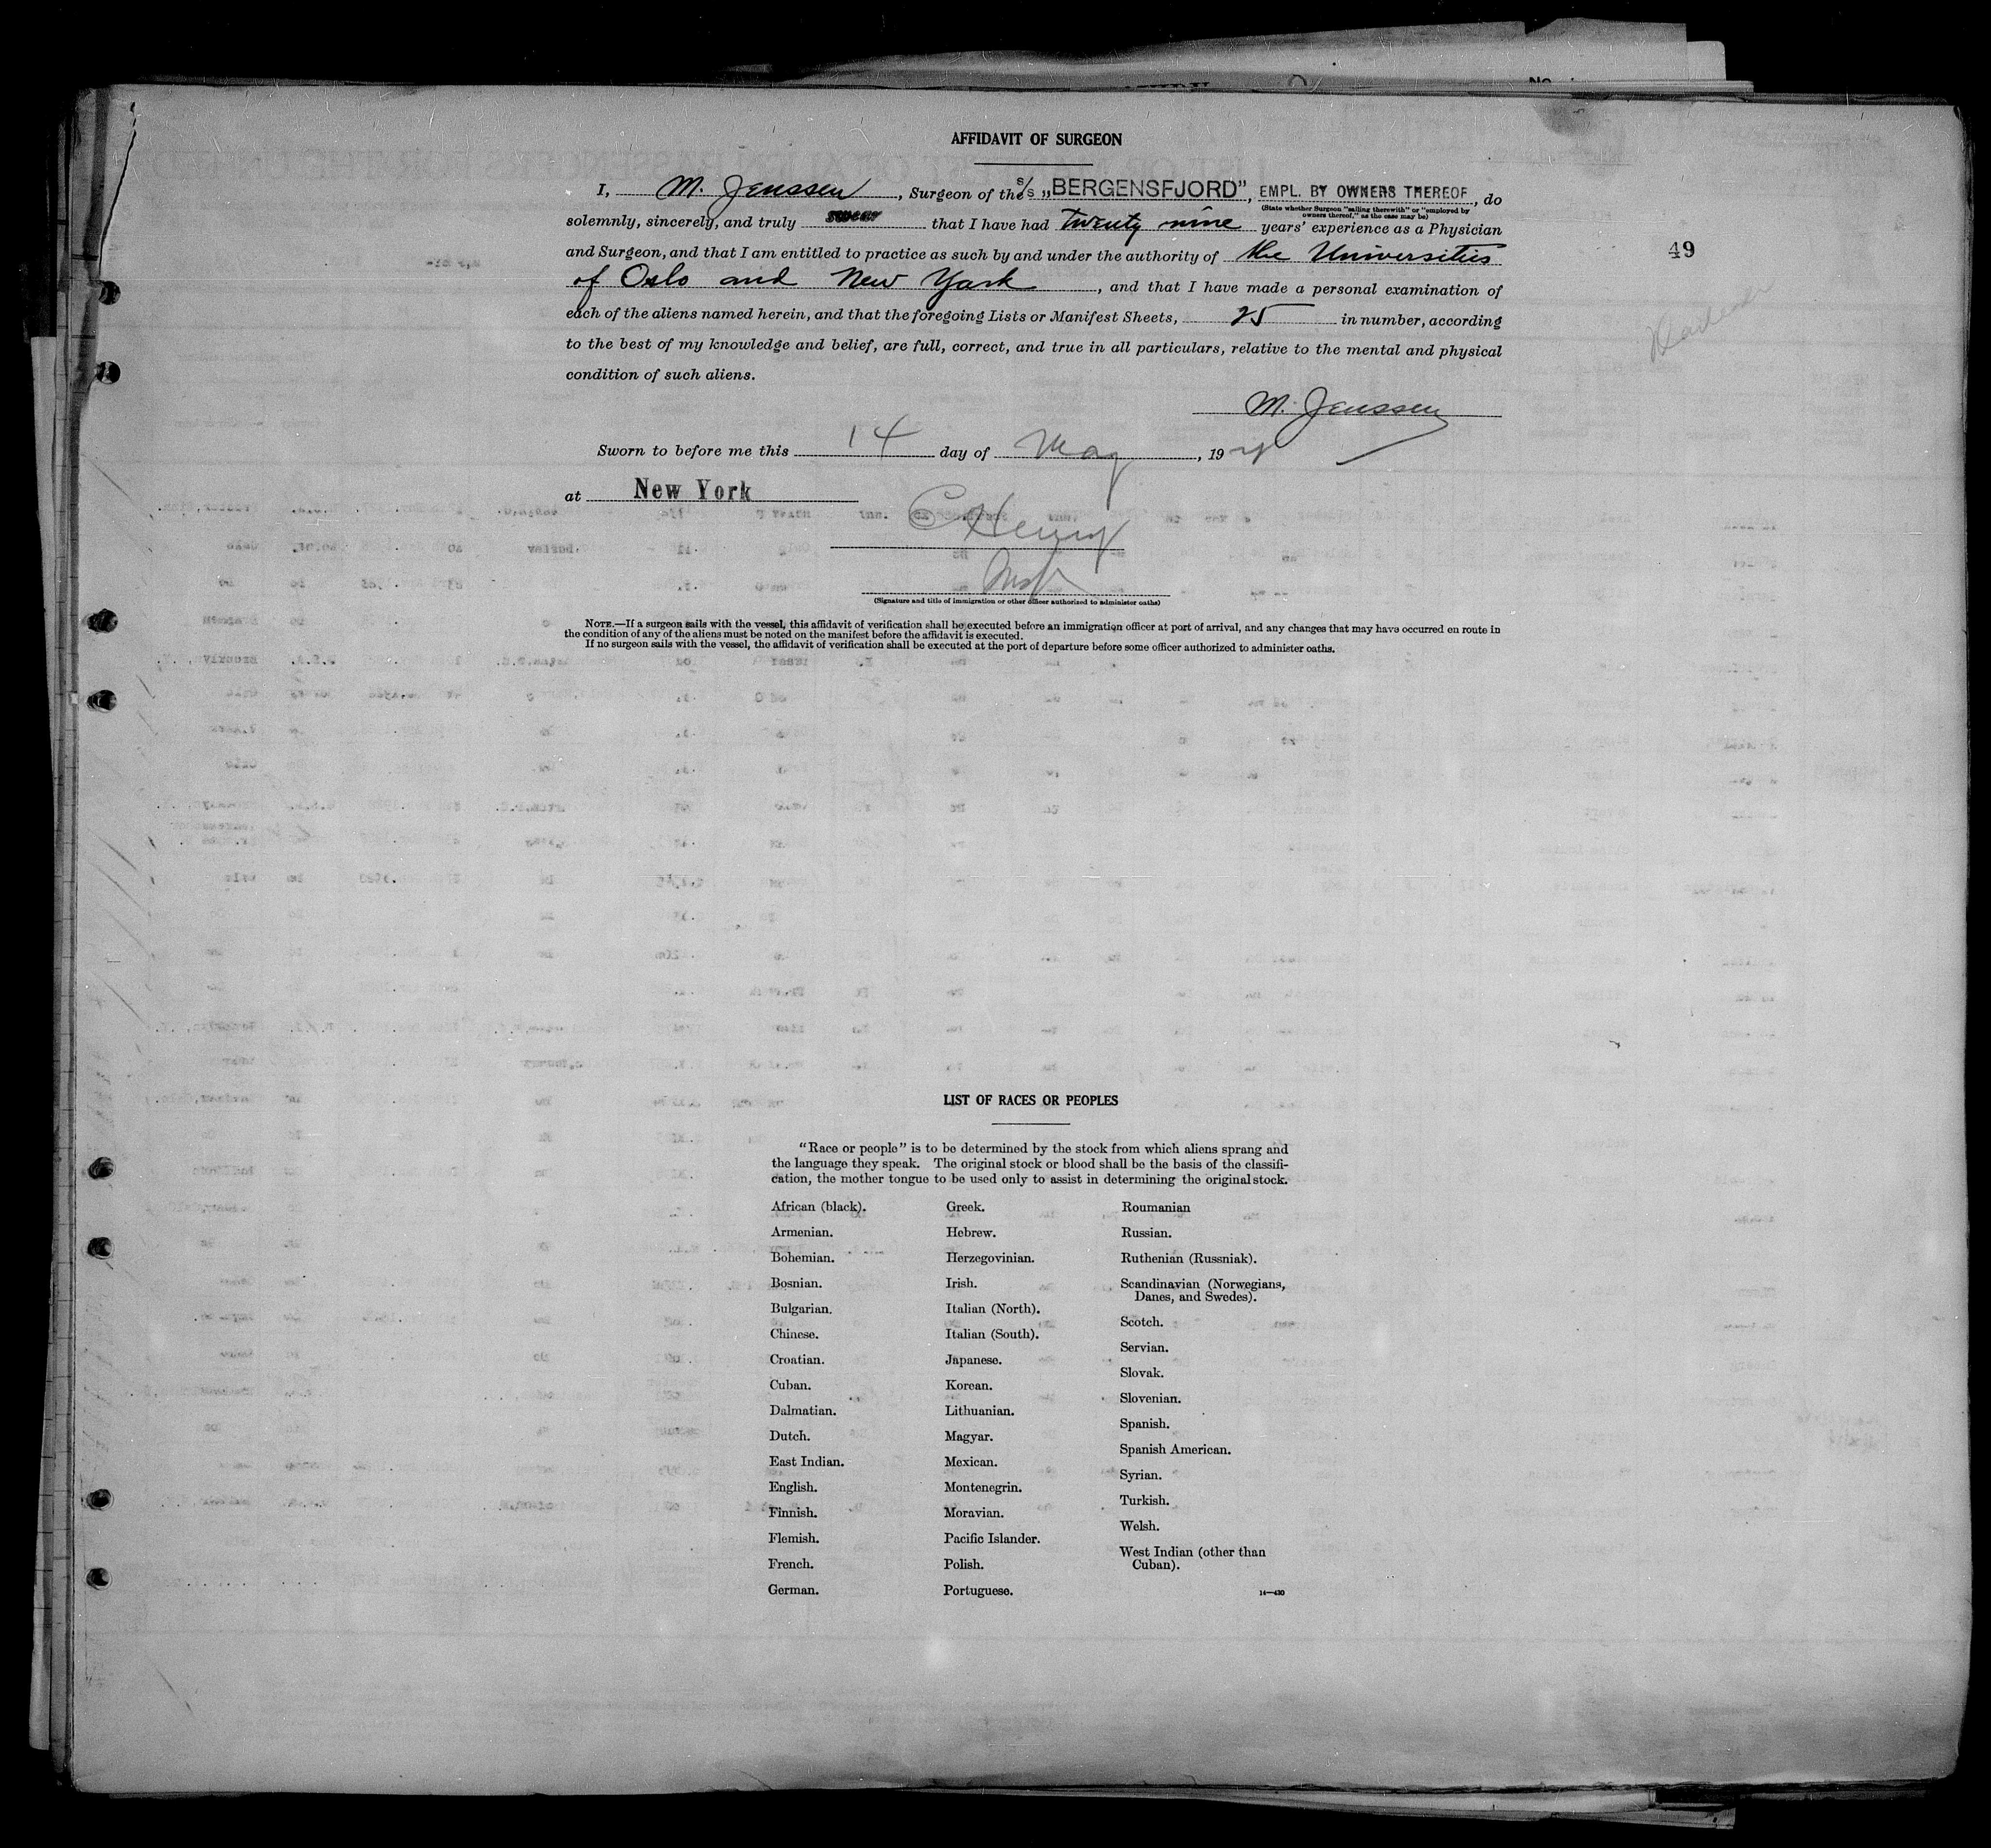 AFFIDAVIT OF SURGEON
I, M. Jenssen, Surgeon of the s/s „BERGENSFJORD”, EMPL. BY OWNERS THEREOF, do
(State whether Surgeon "sailing therewith" or "employed by
owners thereof," as the case may be)
solemnly, sincerely, and truly swear that I have had twenty nine years' experience as a Physician
and Surgeon, and that I am entitled to practice as such by and under the authority of the Universities
of Oslo and New York, and that I have made a personal examination of
each of the aliens named herein, and that the foregoing Lists or Manifest Sheets, 25 in number, according
to the best of my knowledge and belief, are full, correct, and true in all particulars, relative to the mental and physical
condition of such aliens.
49
M. Jenssen
Sworn to before me this 14 day of May, 19
at New York
C Henry
(Signature and title of immigration or other officer authorized to administer oaths)
NOTE.—If a surgeon sails with the vessel, this affidavit of verification shall be executed before an immigration officer at port of arrival, and any changes that may have occurred en route in
the condition of any of the aliens must be noted on the manifest before the affidavit is executed.
If no surgeon sails with the vessel, the affidavit of verification shall be executed at the port of departure before some officer authorized to administer oaths.
LIST OF RACES OR PEOPLES
"Race or people" is to be determined by the stock from which aliens sprang and
the language they speak. The original stock or blood shall be the basis of the classifi-
cation, the mother tongue to be used only to assist in determining the original stock.
African (black).
Armenian.
Bohemian.
Bosnian.
Bulgarian.
Chinese.
Croatian.
Cuban.
Dalmatian.
Dutch.
East Indian.
English.
Finnish.
Flemish.
French.
German.
Greek.
Hebrew.
Herzegovinian.
Irish.
Italian (North).
Italian (South).
Japanese.
Korean.
Lithuanian.
Magyar.
Mexican.
Montenegrin.
Moravian.
Pacific Islander.
Polish.
Portuguese.
Roumanian
Russian.
Ruthenian (Russniak).
Scandinavian (Norwegians,
Danes, and Swedes).
Scotch.
Servian.
Slovak.
Slovenian.
Spanish.
Spanish American.
Syrian.
Turkish.
Welsh.
West Indian (other than
Cuban).
14—430